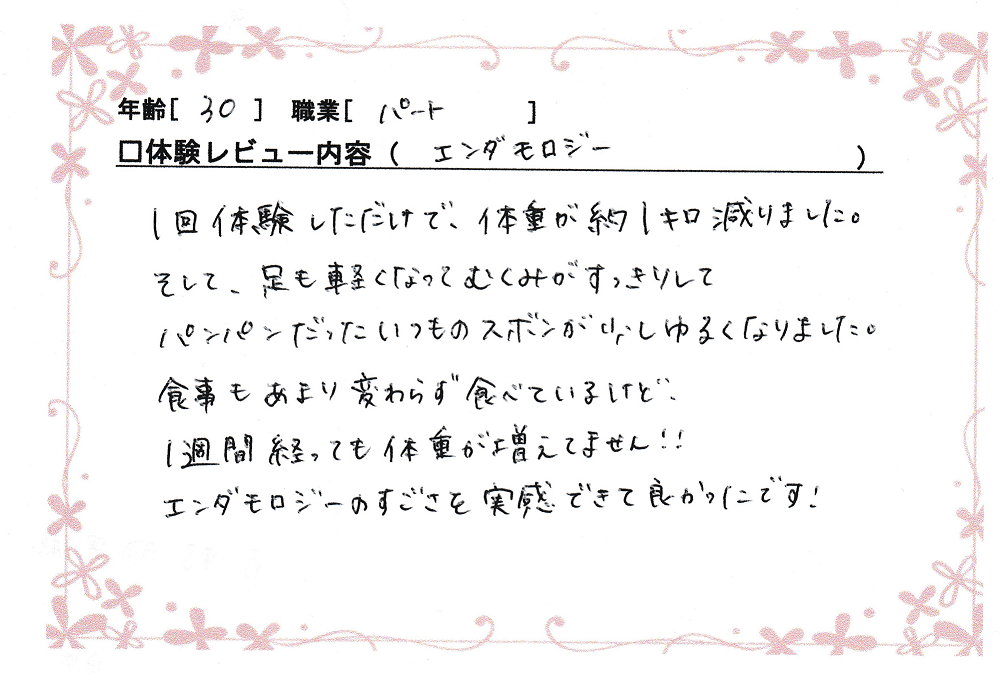 年齢[ 30 ] 職業[ パート ]
□体験レビュー内容 ( エンダモロジー )
1回体験しただけで、体重が約1キロ減りました。
そして、足も軽くなってむくみがすっきりして
パンパンだったいつものスボンが少しゆるくなりました。
食事もあまり変わらず食べているけど、
1週間経っても体重が増えてません!!
エンダモロジーのすごさを実感できて良かったです!